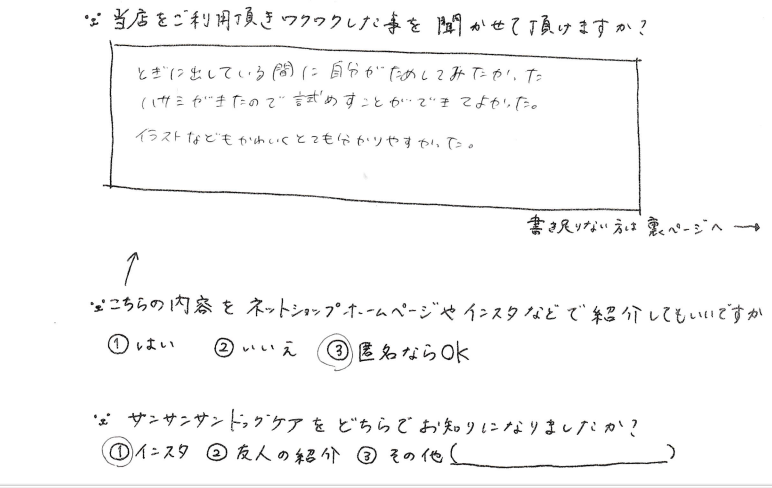 当店をご利用頂きワクワクした事を聞かせて頂けますか?
とぎに出している間に自分がためしてみたかった
ハサミがきたので試めすことができてよかった。
イラストなどもかわいくとても分かりやすかった。
書き足りない方は裏ページへ →
こちらの内容をネットショップホームページやインスタなどで紹介してもいいですか
①はい ②いいえ ③匿名ならOK
サンサンサンドッグケアをどちらでお知りになりましたか?
①インスタ ②友人の紹介 ③その他( )